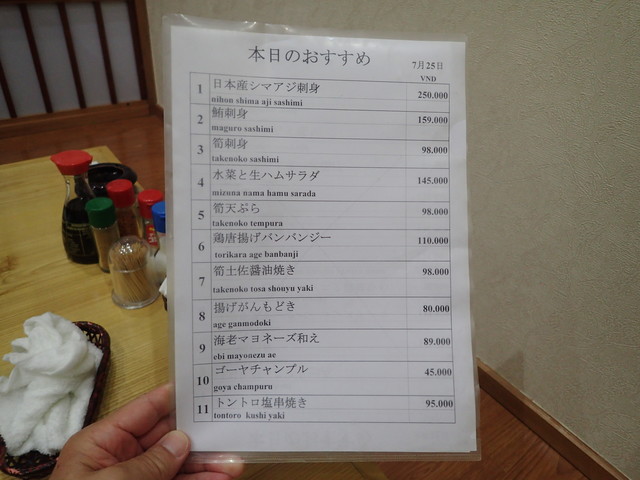 本日のおすすめ
7月25日
VND
1 日本産シマアジ刺身 250.000
nihon shima aji sashimi
2 鮪刺身 159.000
maguro sashimi
3 筍刺身 98.000
takenoko sashimi
4 水菜と生ハムサラダ 145.000
mizuna nama hamu sarada
5 筍天ぷら 98.000
takenoko tempura
6 鶏唐揚げバンバンジー 110.000
torikara age banbanji
7 筍土佐醤油焼き 98.000
takenoko tosa shouyu yaki
8 揚げがんもどき 80.000
age ganmodoki
9 海老マヨネーズ和え 89.000
ebi mayonezu ae
10 ゴーヤチャンプル 45.000
goya champuru
11 トントロ塩串焼き 95.000
tontoro kushi yaki